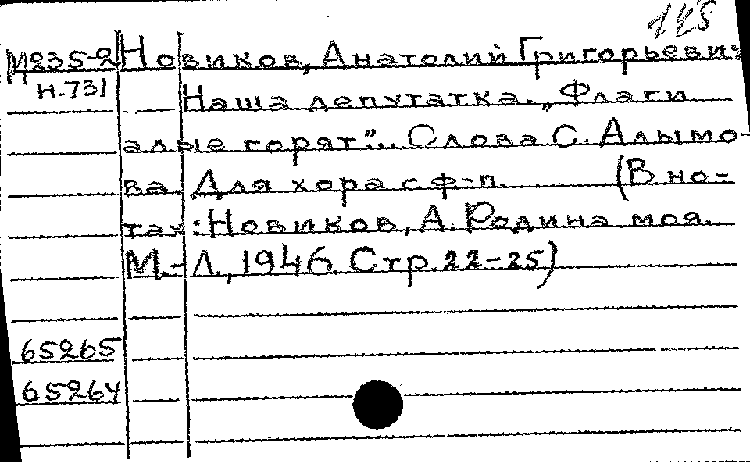 125
М235-2 Новиков, Анатолий Григорьеви
Н-731 Наша депутатка. „Флаги
алые горят“.. Слова С. Алымо-
ва. Для хора с ф-п. (В но-
тах: Новиков, А. Родина моя.
М.-Л., 1946. Стр. 22-25)
65265
65264